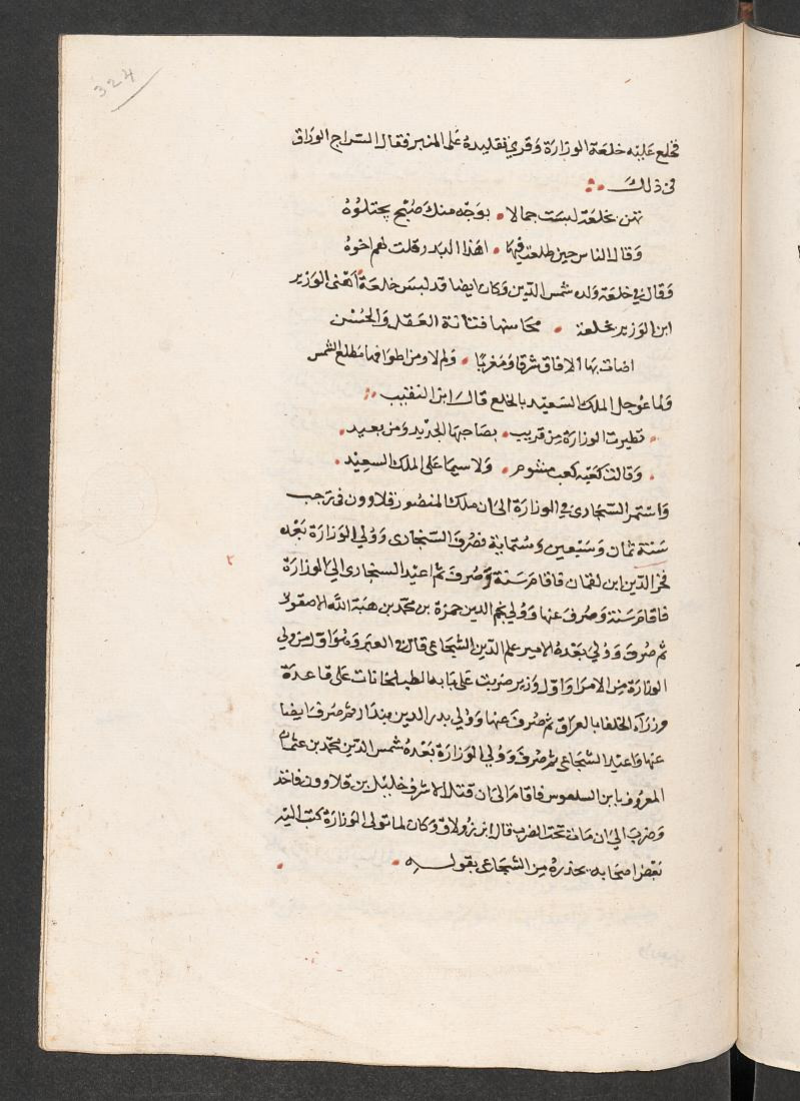 324
فخلع عليه خلعة الوزارة وقري تقليده على المنبر فقال السراج الوراق
في ذلك
تهن بخلعة لبست جمالا • بوجه منك صبح يجتلوه
وقال الناس حين طلعت فيها • اهذا البدر قلت نعم اخوه
وقال في خلعة ولده شمس الدين وكان ايضا قد لبس خلعة اهني الوزير
ابن الوزير بخلعة • محاسنها فتانة العقل والحسن
اضات بها الافاق شرقا ومغربا • ولم لا ومن اطواقها مطلع الشمس
ولما عوجل الملك السعيد بالخلع قال ابن النقيب
• تطيرت الوزارة من قريب • بصاحبها الجديد ومن بعيد •
• وقالت كعبه كعب مشوم • ولا سيما على الملك السعيد •
واستمر السنجاري في الوزارة الى ان ملك المنصور قلاوون في رجب
سنة ثمان وسبعين وستماية فصرف السنجاري وولي الوزارة بعده
فخر الدين ابن لقمان فاقام سنة وصرف ثم اعيد السنجاري الى الوزارة
فاقام سنة وصرف عنها وولي نجم الدين حمزة بن محمد بن هبة الله الاصفوني
ثم صرف وولي بعده الامير علم الدين الشجاعي قال في العبر وهو اول من ولي
الوزارة من الامرا واول وزير ضربت على بابه الطبلخانات على قاعدة
وزرآء الخلفا بالعراق ثم صرف عنها وولي بدر الدين بيدار ثم صرف ايضا
عنها واعيد الشجاعي ثم صرف وولي الوزارة بعده شمس الدين محمد بن عثمان
المعروف بابن السلعوس فاقام الى ان قتل الاشرف خليل بن قلاوون فاخذ
وضرب الى ان مات تحت الضرب قال ابن زولاق وكان لما تولى الوزارة كتب اليه
بعض اصحابه يحذره من الشجاعي بقوله •